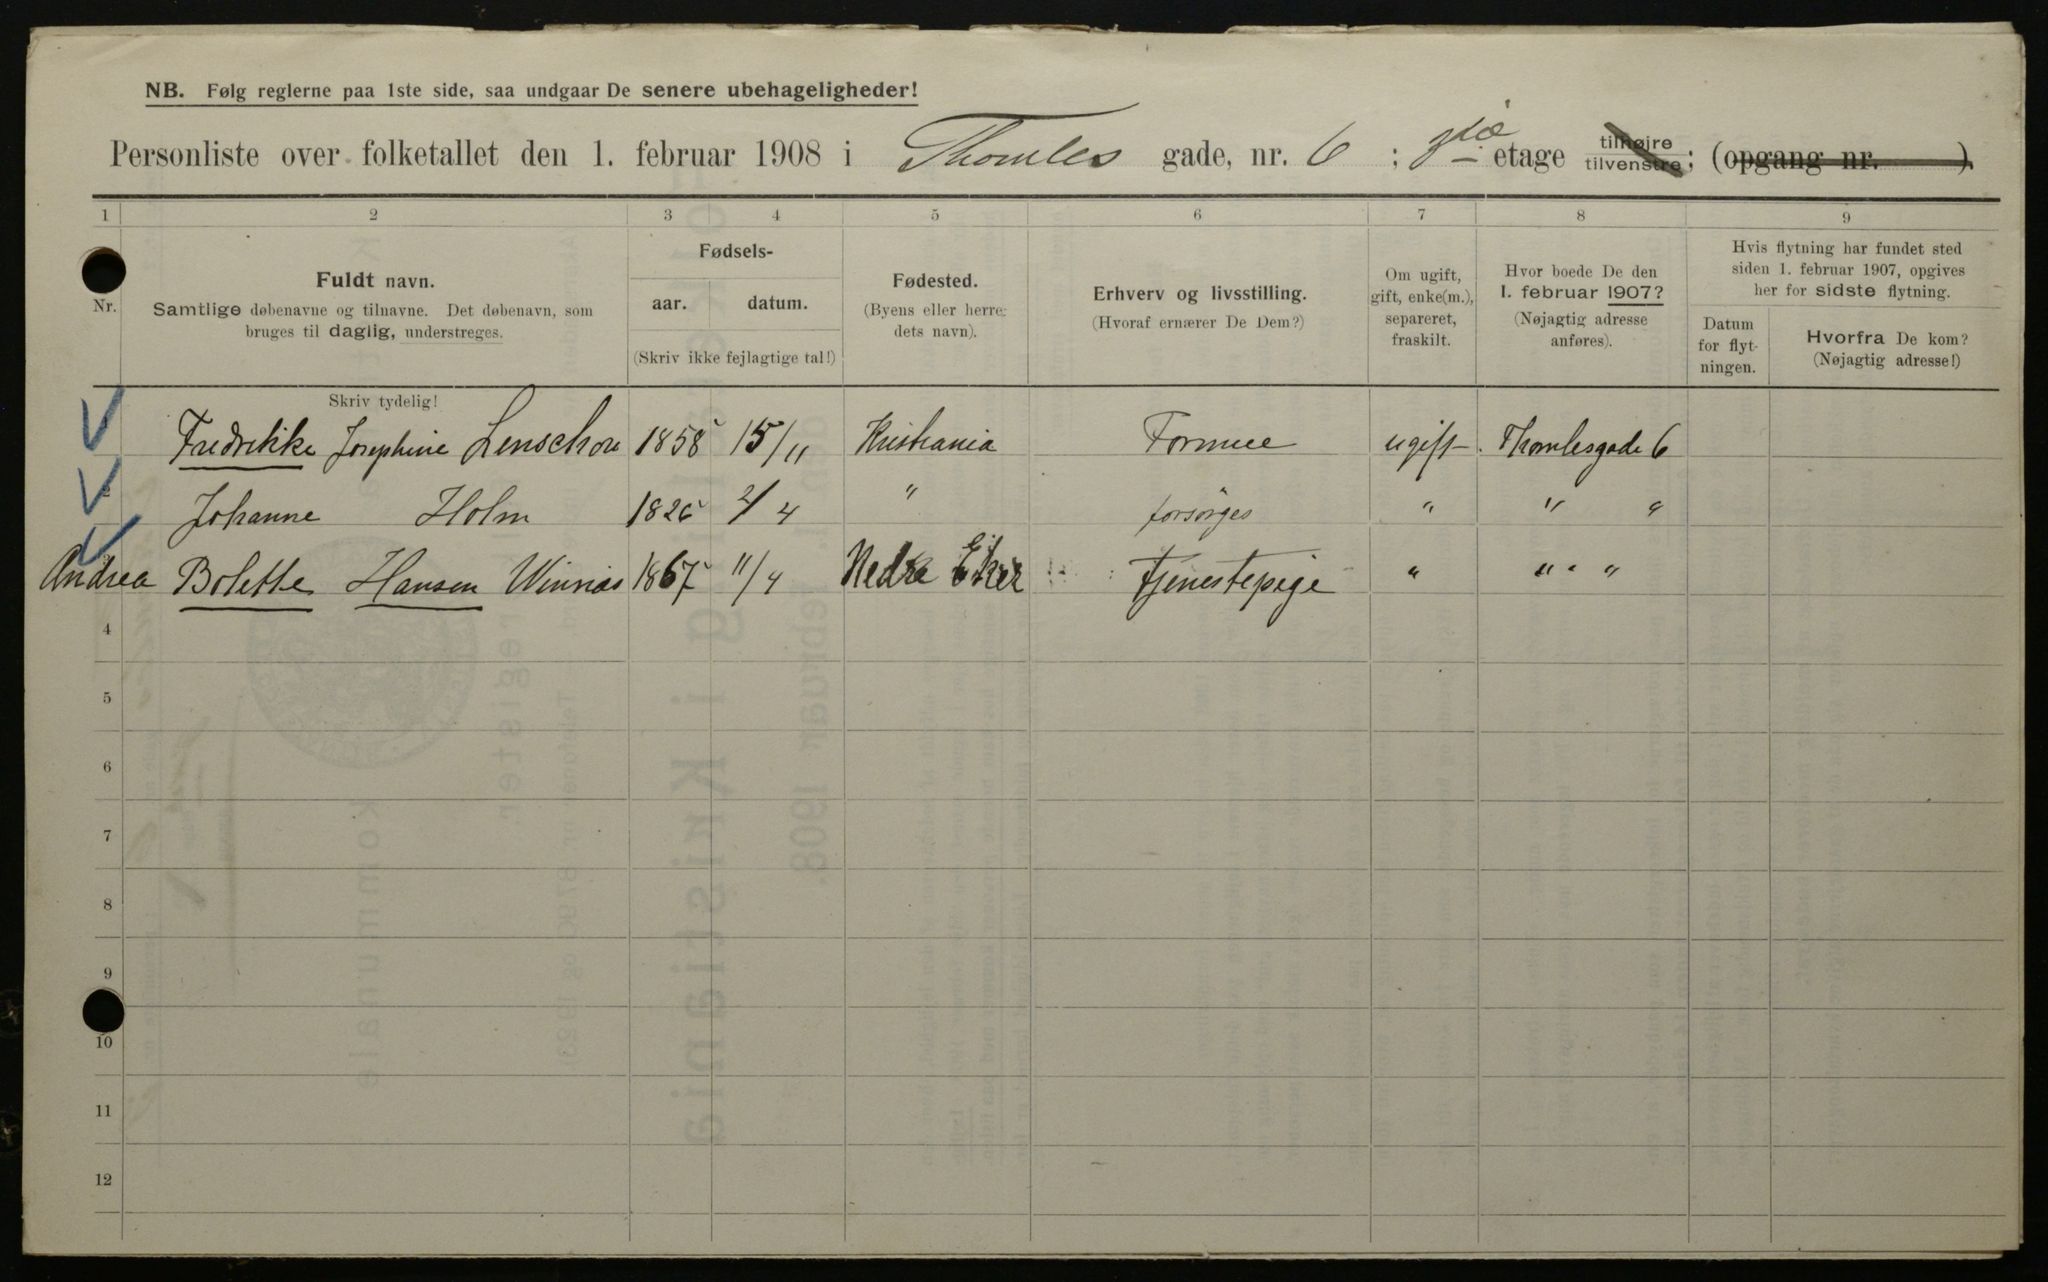 NB. Følg reglerne paa 1ste side, saa undgaar De senere ubehageligheder!
Personliste over folketallet den 1. februar 1908 i Thomles gade, nr. 6 ; 3die etage tilhøjre tilvenstre ; (opgang nr. ).
1 2 3 4 5 6 7 8 9
Nr.
Fuldt navn.
Samtlige døbenavne og tilnavne. Det døbenavn, som
bruges til daglig, understreges.
Fødsels-
aar. datum.
(Skriv ikke fejlagtige tal!)
Fødested.
(Byens eller herre-
dets navn).
Erhverv og livsstilling.
(Hvoraf ernærer De Dem?)
Om ugift,
gift, enke(m.),
separeret,
fraskilt.
Hvor boede De den
1. februar 1907?
(Nøjagtig adresse
anføres).
Hvis flytning har fundet sted
siden 1. februar 1907, opgives
her for sidste flytning.
Datum
for flyt-
ningen.
Hvorfra De kom?
(Nøjagtig adresse!)
Skriv tydelig!
Fredrikke Josephine Lenschow 1858 15/11 Kristiania Formue ugift. Thomlesgade 6
2 Johanne Holm 1826 2/4 " forsørges " " "
Andrea Bolette Hansen Winnæs 1867 11/4 Nedre Eker Tjenestepige " " "
4
5
6
7
8
9
10
11
12